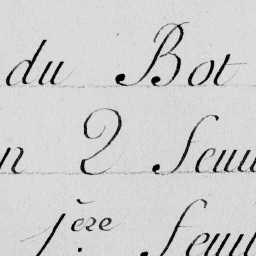 du Bot
n 2 feu
1ère feu